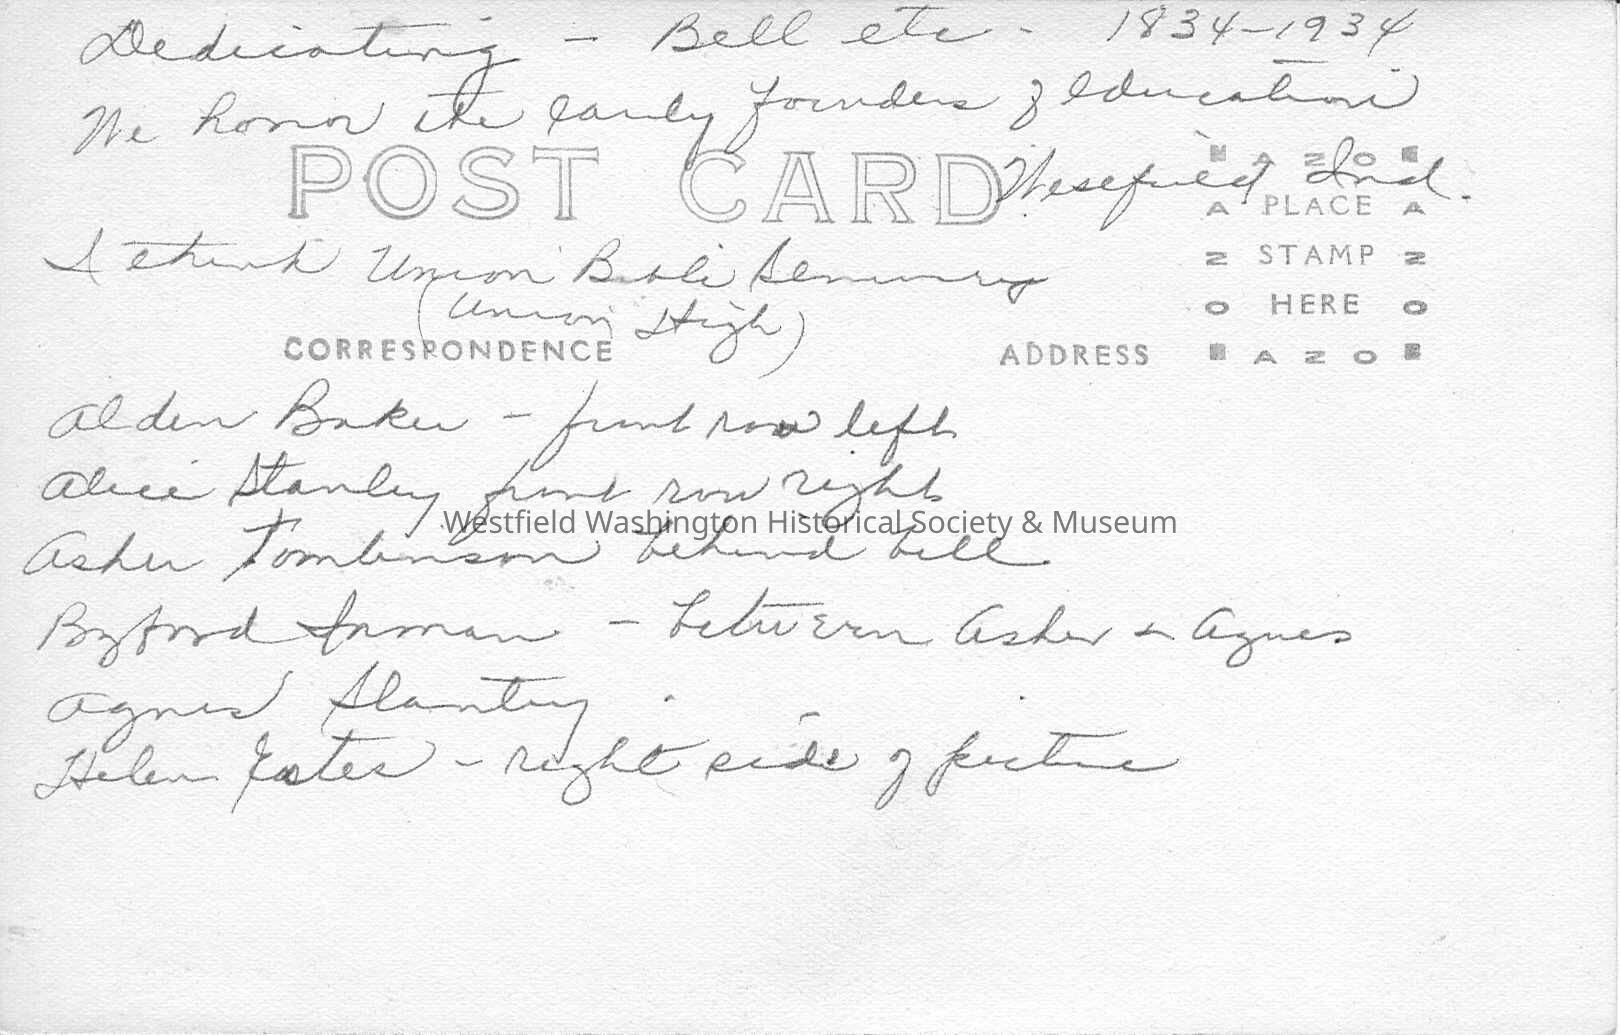 Dedicating - Bell etc - 1834-1934
We honor the early founders of education
POST CARD
Westfield Ind.
AZO
PLACE
STAMP
HERE
AZO
I think Union Bible Seminary
(Union High)
CORRESPONDENCE ADDRESS
Alden Baker - front row left
Alice Stanley front row right
Westfield Washington Historical Society & Museum
Asher Tomlinson behind bell.
Byford Inman - between Asher & Agnes
Agnes
Helen Estes - right side of picture